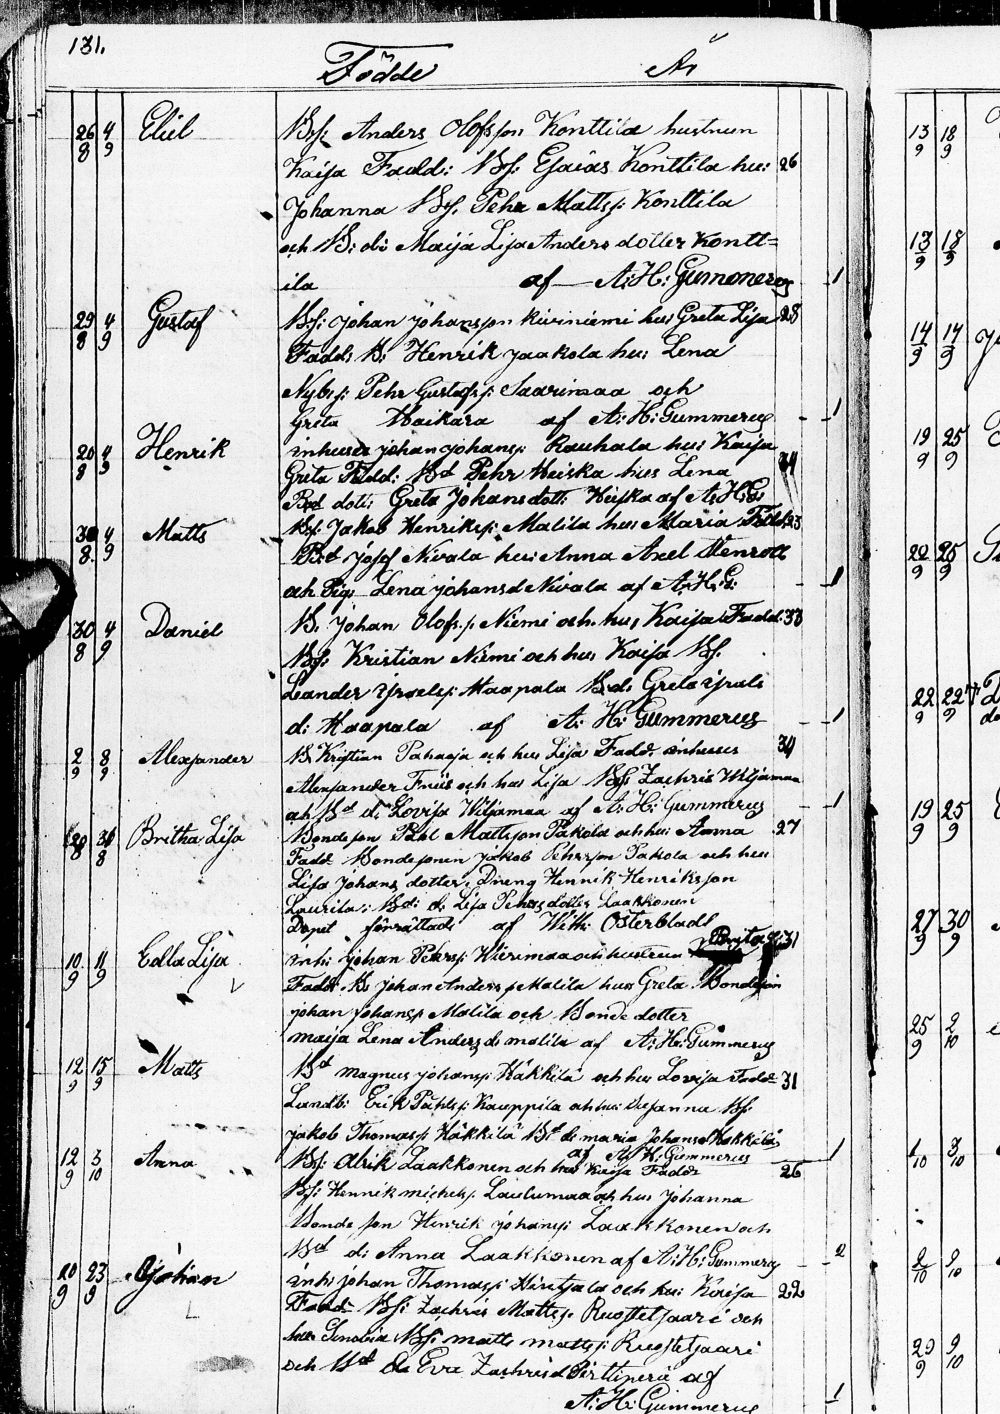 131.
Födde År
26/8 4/9 Eliel Bs: Anders Olofsson Konttila hustrun
Kaija Fadd: Bs: Esaias Konttila hu: 26
Johanna Bs. Pehr Mattss: Konttila
och B: d: Maija Lisa Anders dotter Kontt=
ila af A: H: Gummerus 1
29/8 4/9 Gustaf Bs: Johan Johansson Kiviniemi hus Greta Lisa 28
Fadd: B: Henrik Jaakola hu: Lena
Nybs: Pehr Gustafs: Saarimaa och
Greta Haikara af A: H: Gummerus 1
20/8 4/9 Henrik inhuses Johan Johans: Rauhala hu: Kaija
Greta Fadd: Bd Pehr Heiska hus Lena 34
dott: Greta Johans dott: Heiska af A: H: G:
30/8 4/9 Matts Bs: Jakob Henriks: Malila hu: Maria Fadd: 23
Bd Josef Nivala hu: Anna Axel Stenroth
och Pig: Lena Johans d Nivala af A: H: G: 1
30/8 4/9 Daniel B. Johan Olofs: Niemi och hus Kaisa Fadd: 33
Bs: Kristian Niemi och hus Kaisa Bs:
Leander Israels: Haapala B. d. Greta Israls
d: Haapala af A: H: Gummerus 1
2/9 8/9 Alexander B Kristian Pahaoja och hus Lisa Fadd: inhuses 34
Alexander Friis och hus Lisa Bs: Zachris Wiljamaa
och Bd d: Lovisa Wiljamaa af A: H: Gummerus 1
28/8 31/8 Britha Lisa Bondeson Pål Mattsson Pakola och hu: Anna 27
Fadd Bondesonen Jakob Pehrsson Pakola och hus
Lisa Johans dotter, Dreng Henrik Henriksson
Laurila, B: d: Lisa Pehrs dotter Laakkonen
Dopet förrättadt af Wilh: Österbladh
10/9 11/9 Edla Lisa inh: Johan Pehrs: Wierimaa och hustrun Brita 31
Fadd. B: Johan Anders s: Malila hus Greta Bondeson
Johan Johans: Malila och Bonde dotter
Maija Lena Anders d: Malila af A: H: Gummerus
12/9 15/9 Matts Bd Magnus Johans: Häkkilä och hus Lovisa Fadd 31
Landb: Erik Påhls: Kauppila och hu: Susanna Bs:
Jakob Thomas: Häkkilä Bd d: Maria Johans Häkkilä
af A: H: Gummerus 1
12/9 3/10 Anna Bs: Olrik Laakkonen och hus Kaisa Fadd: 26
Bs: Henrik Michels: Laulumaa och hus Johanna
Bonde son Henrik Johans: Laakkonen och
Bd d: Anna Laakkonen af A: H: Gummerus 2
20/9 23/9 Johan inh: Johan Thomas: Hirsjala och hu: Kaisa 22
Fadd Bs: Zachris Matts: Ruostetsaari och
hus Senobia Bs: Matts Matts: Ruostetsaari
och Bd d: Eva Zachris d Pirttiperä af
A: H: Gummerus 1
13/9 18/9
13/9 18/9
14/9 17/9
19/9 25/9
22/9 25/9
22/9 22/9
19/9 25/9
27/9 30/9
25/9 2/10
1/10 3/10
2/10 9/10
29/9 9/10